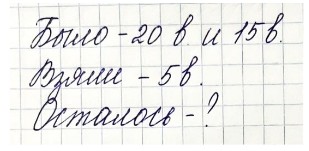 Было - 20 в. и 15 в.
Взяли - 5 в.
Осталось - ?